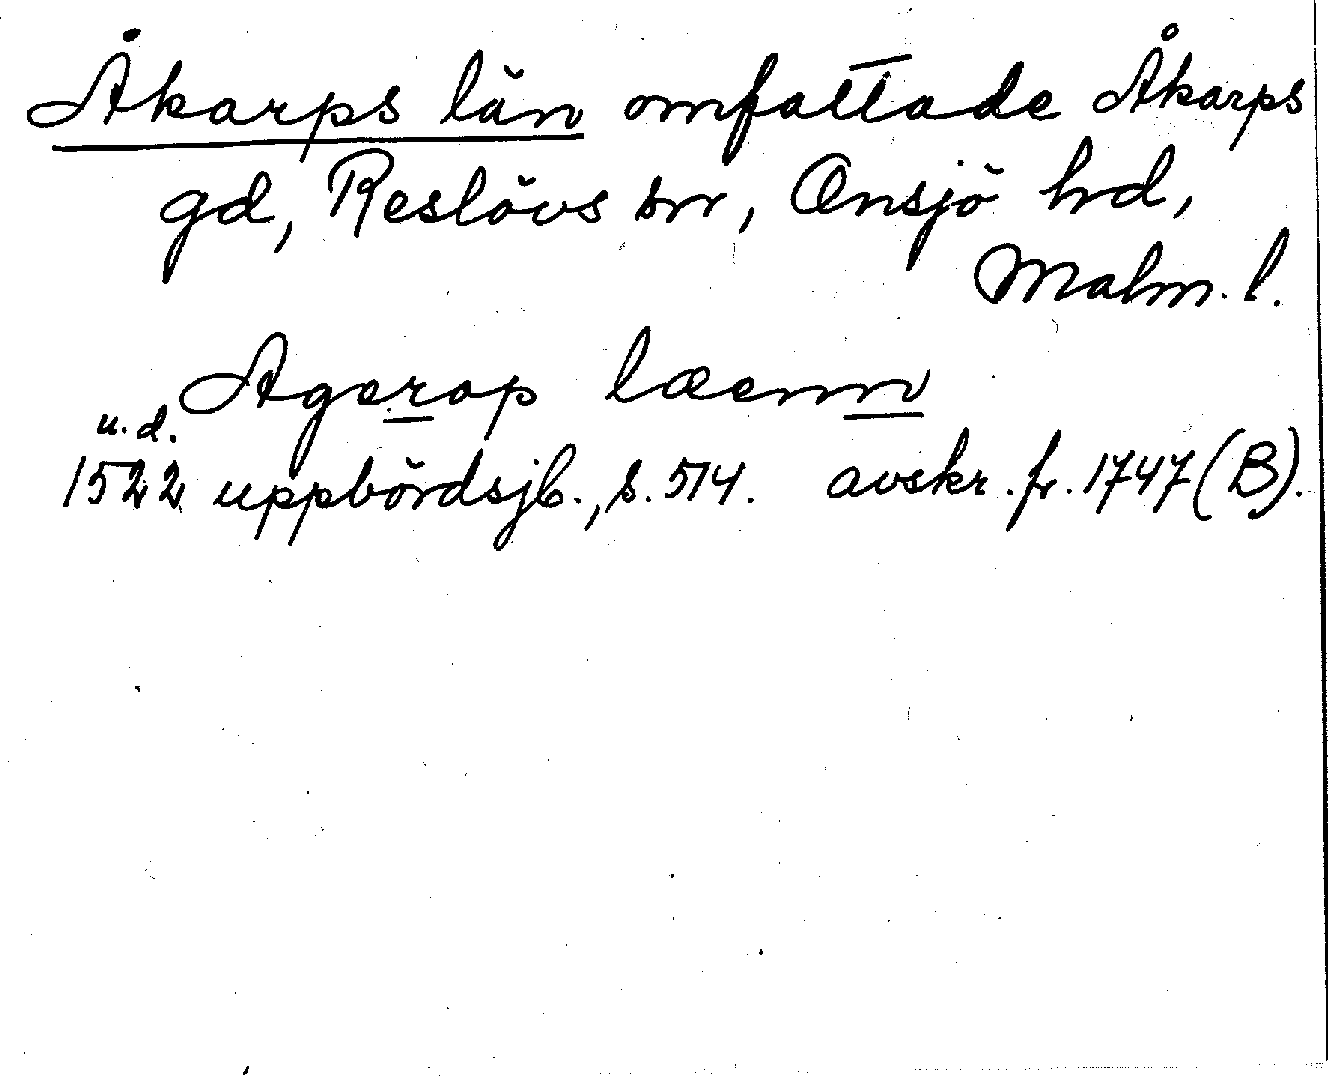 Åkarps län omfattade Åkarps
gd, Reslövs sn, Onsjö hd,
Malm. l.
Agerop læenn
u.d.
1522 uppbördsjb., s. 514. avskr. fr. 1747 (B).